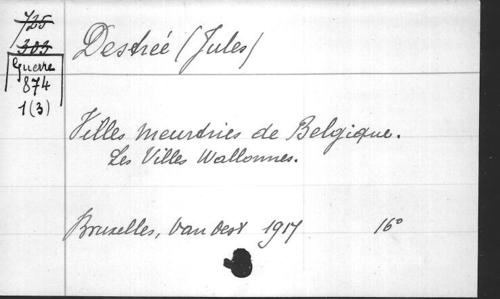 725
303
Guerre
874
1(3)
Destrée (Jules)
Villes meurtries de Belgique.
Les Villes Wallonnes.
Bruxelles, Van Oest 1917 16°